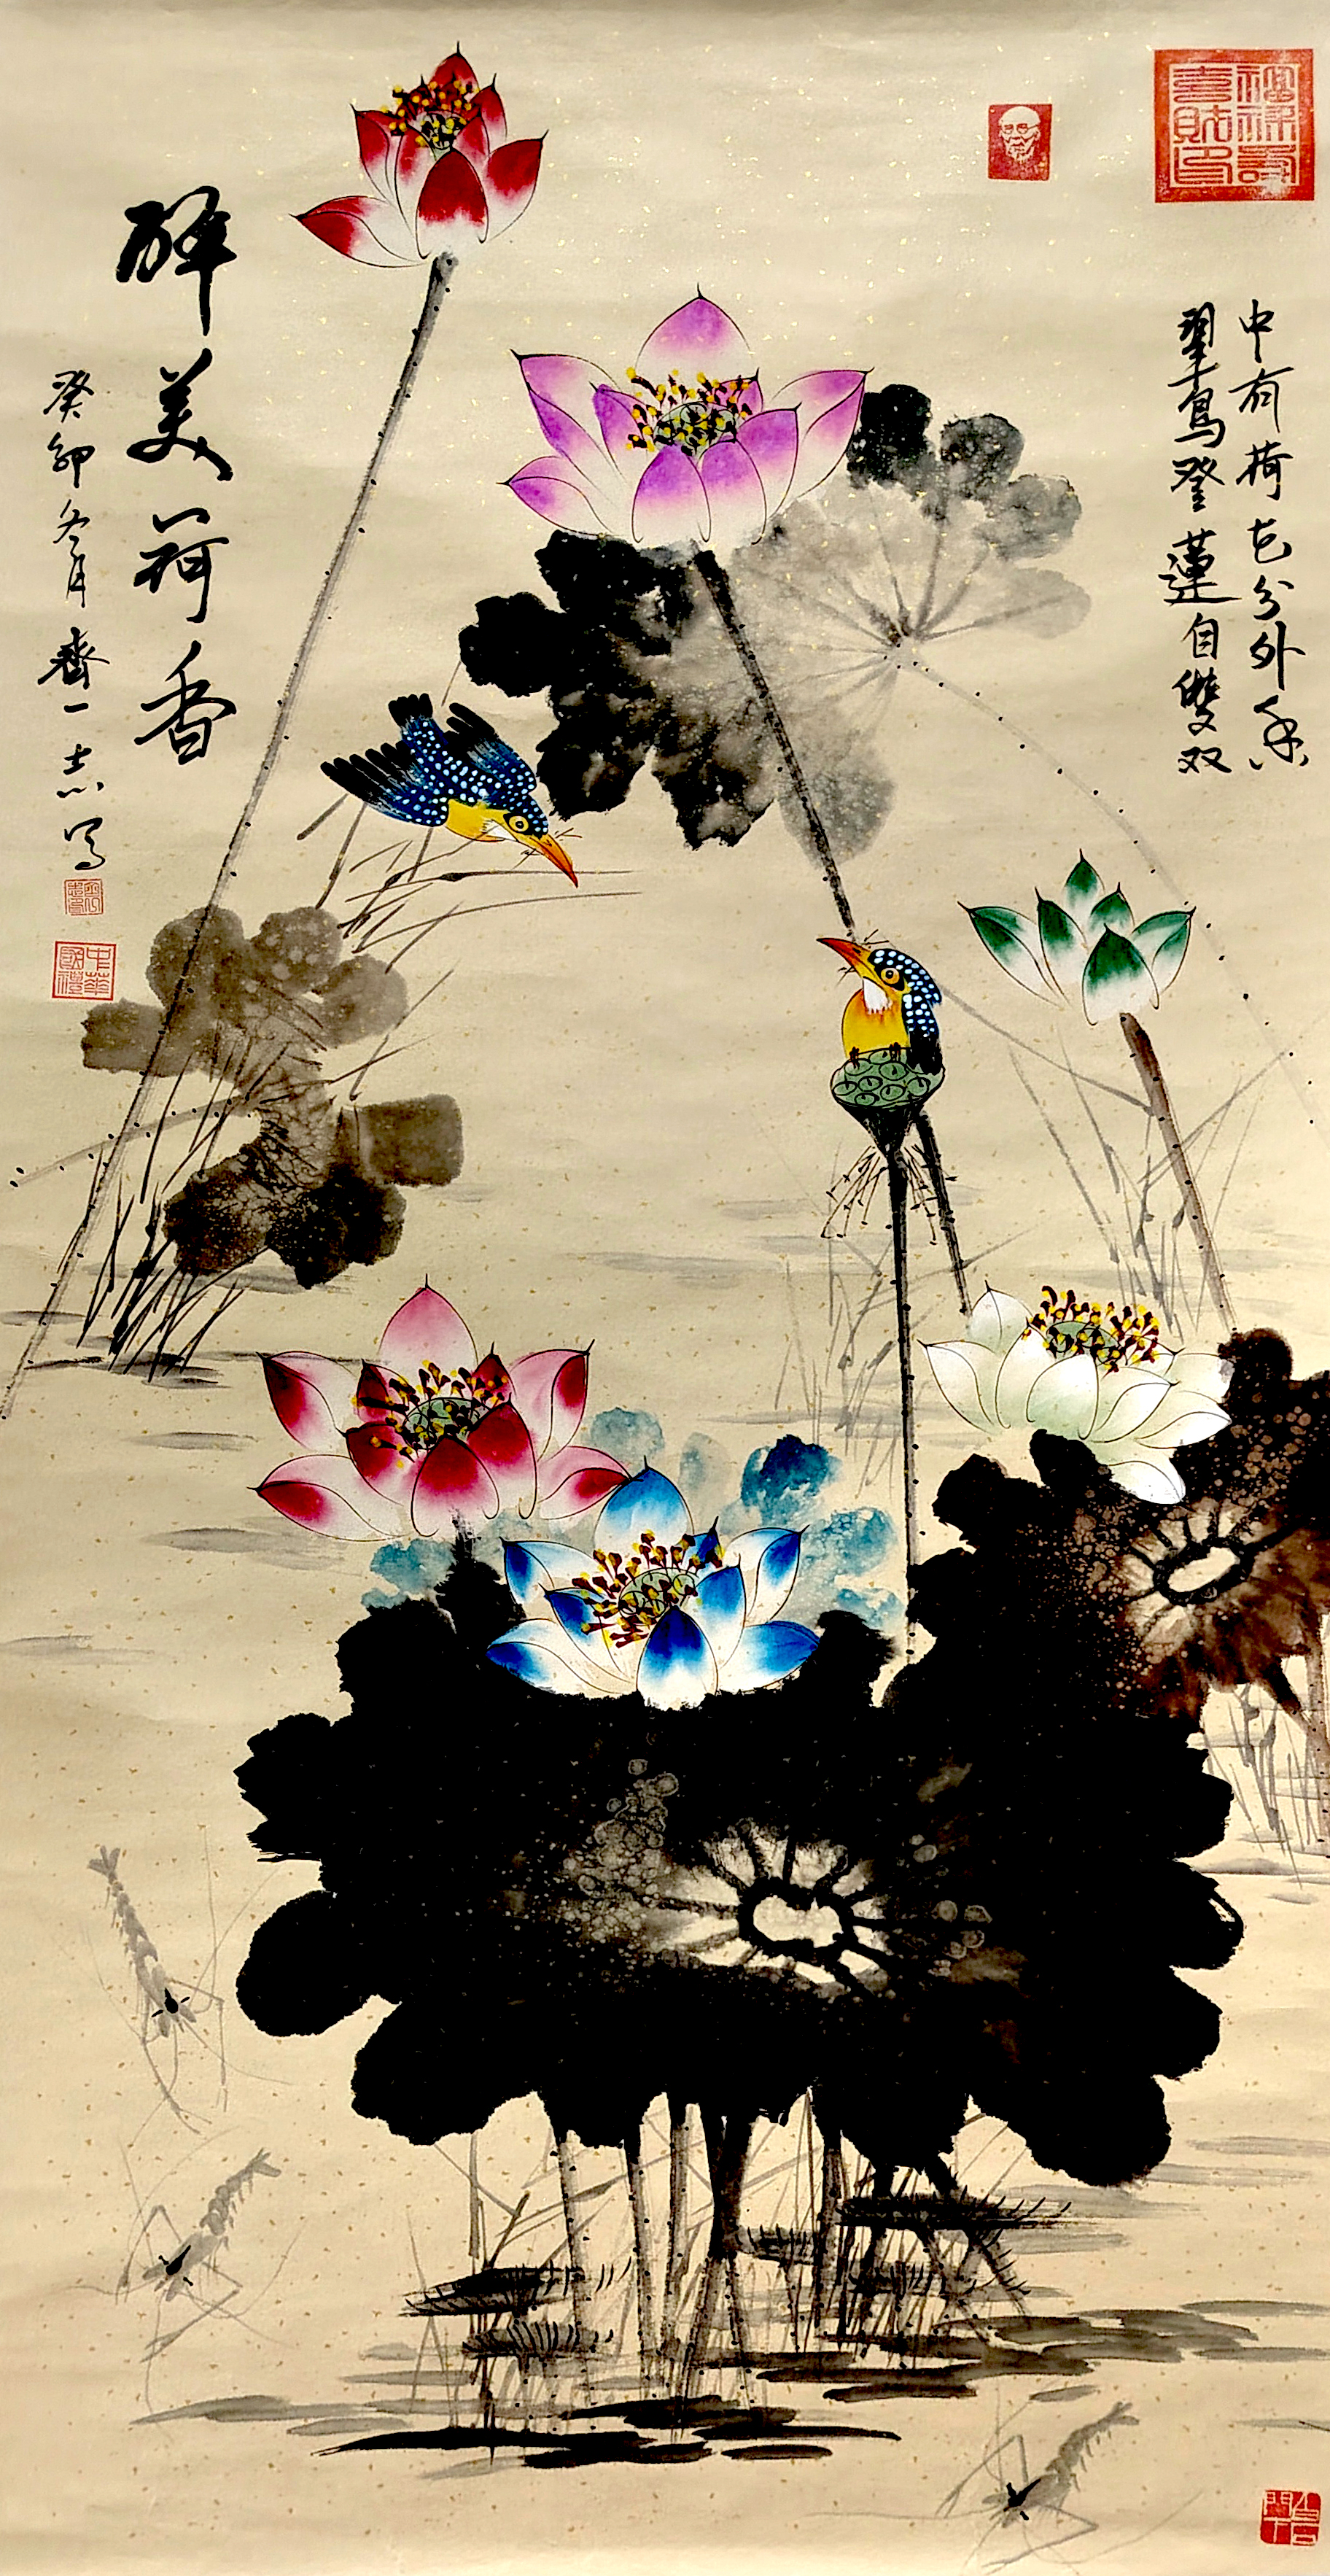 中有荷花分外香
翠鸟登莲自双双
醉美荷香
癸卯冬月齐一志写
中华国礼